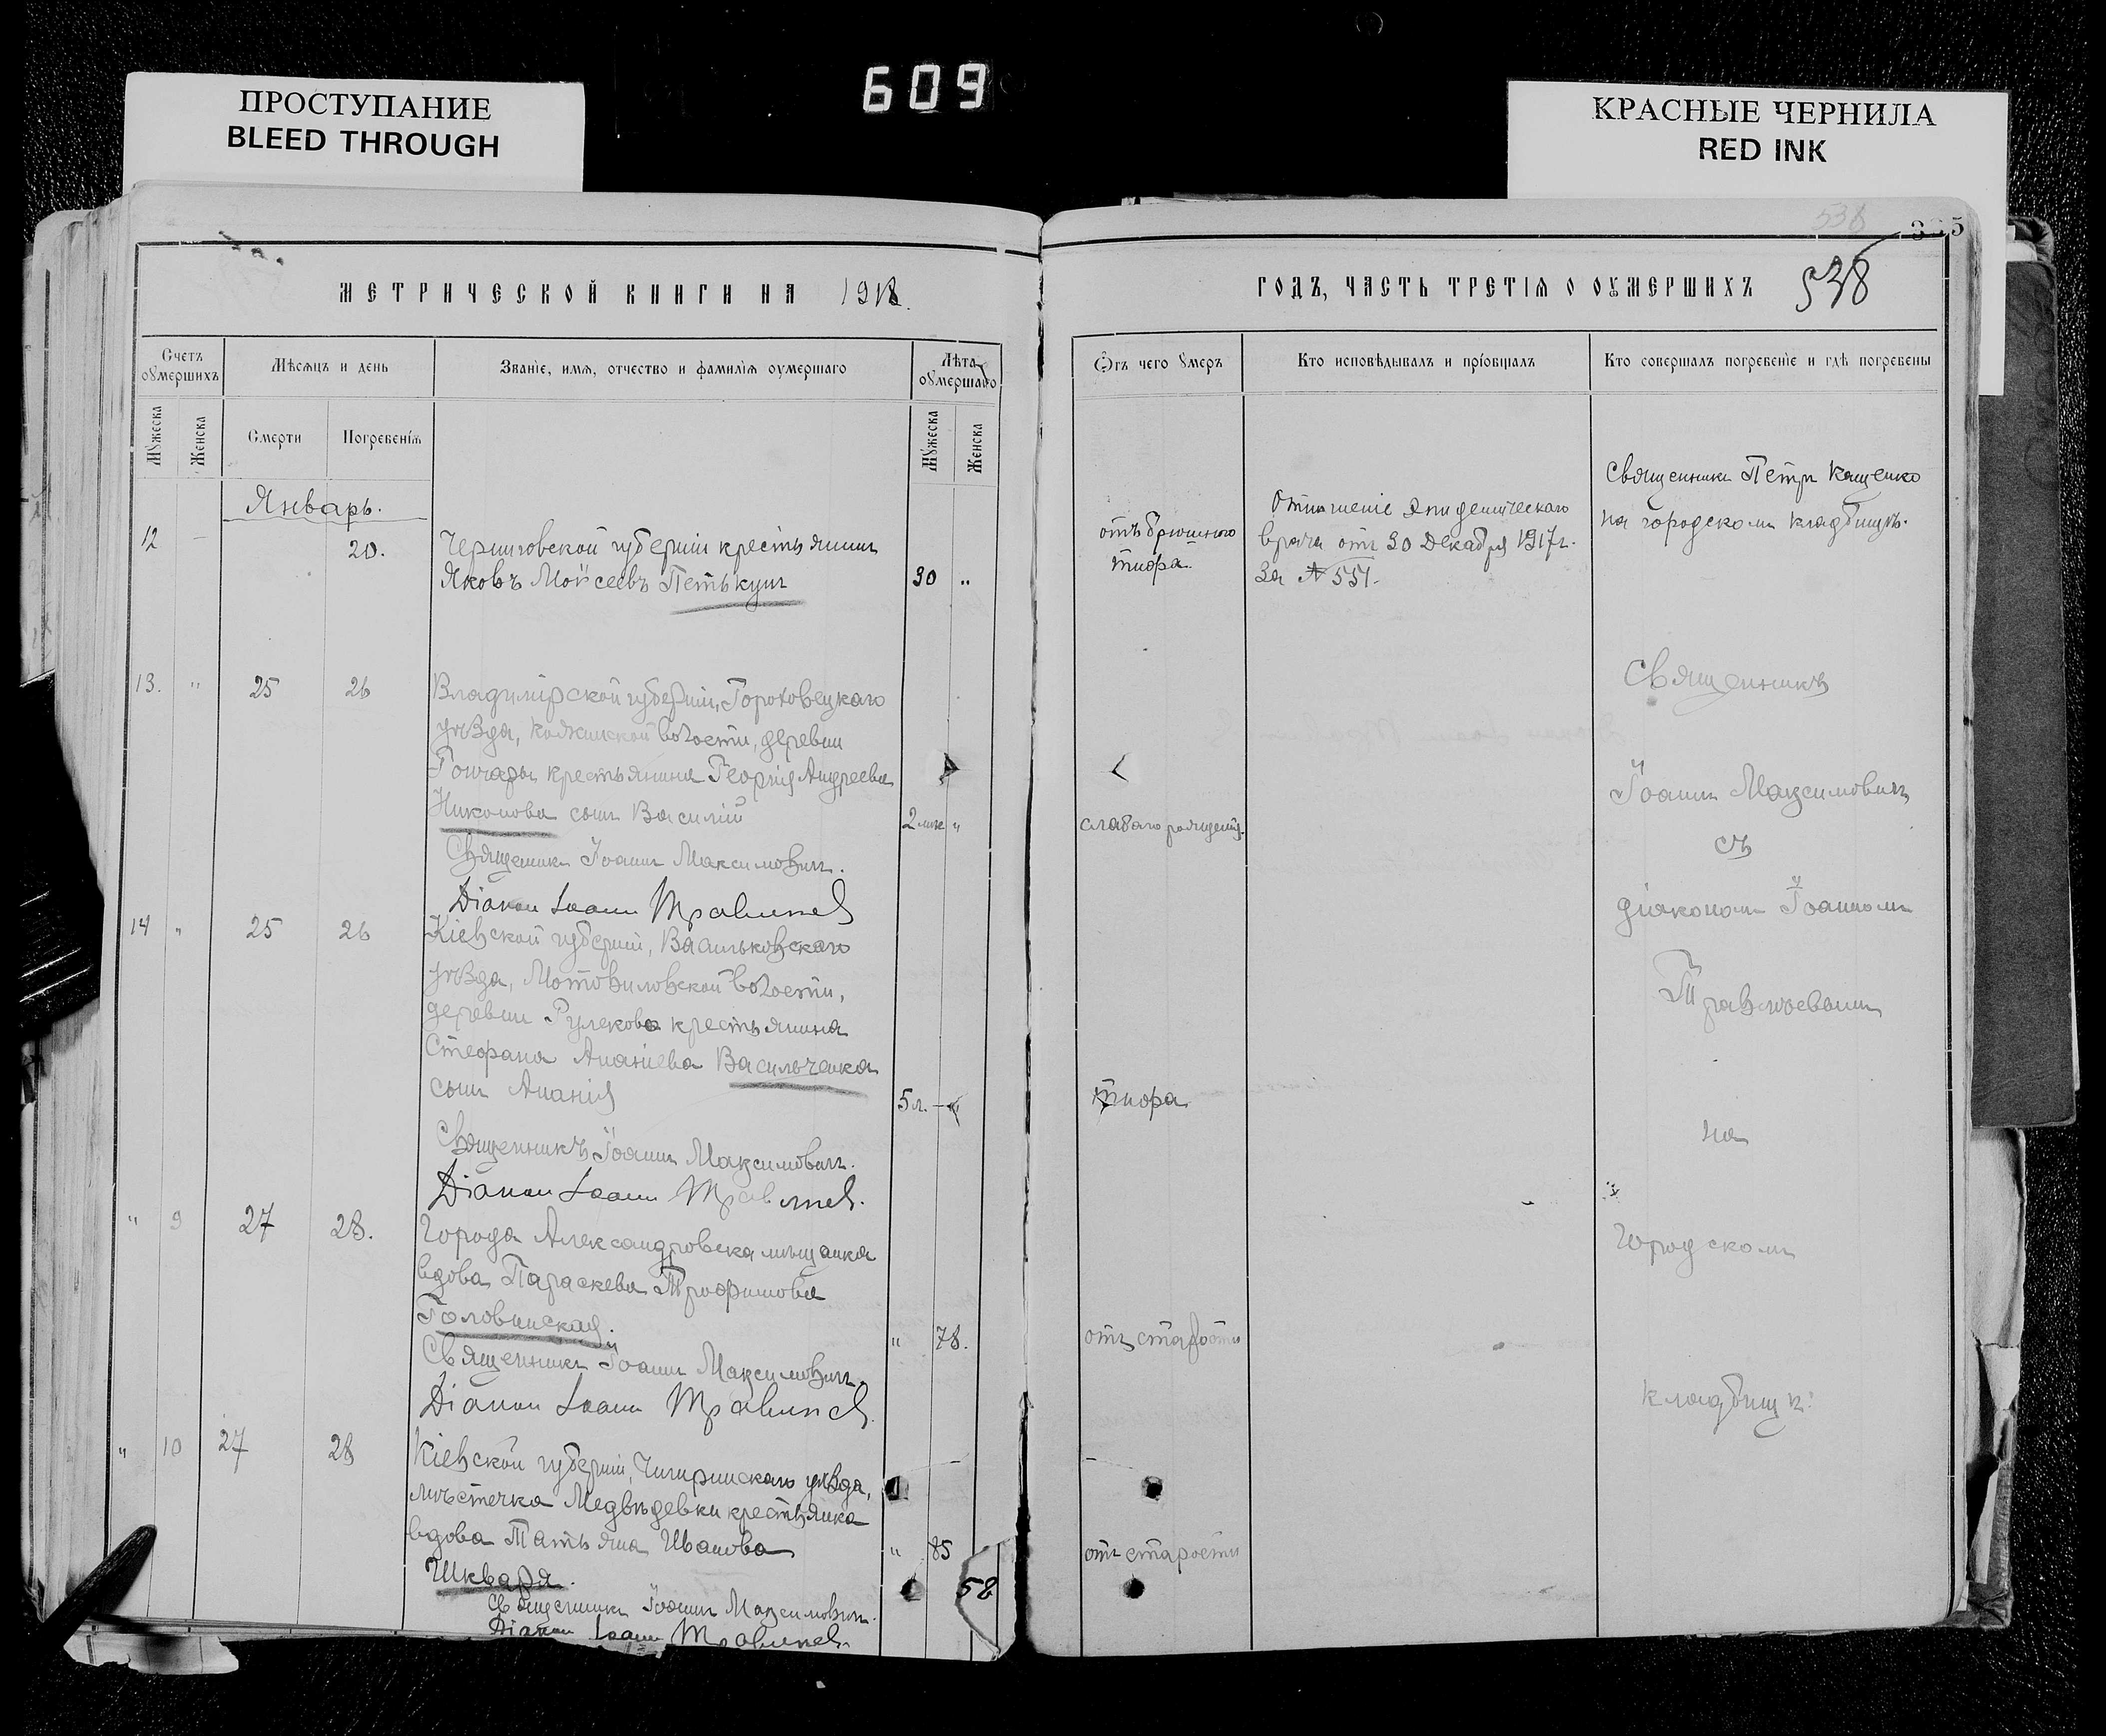 609
ПРОСТУПАНИЕ
BLEED THROUGH
КРАСНЫЕ ЧЕРНИЛА
RED INK
МЕТРИЧЕСКОЙ КНИГИ НА 1918.
Счетъ оумершихъ
Мѣсяцъ и день
Званіе, имя, отчество и фамилія оумершаго
Лѣта оумершаго
Мужеска
Женска
Смерти
Погребенія
Мужеска
Женска
Январь.
12 — 20. Черниговской губерніи крестьянинъ
Яковъ Мойсеевъ Петькунъ 30 „
13. „ 25 26 Владимірской губерніи, Гороховецкаго
уѣзда, волости, деревни
Гончары крестьянина Георгія Андреева
Никонова сынъ Василій 2 мѣс „
Священникъ Іоаннъ Максимовичъ.
Діаконъ Іоаннъ Травлѣев
14 „ 25 26 Кіевской губерніи, Васильковскаго
уѣзда, Мотовиловской волости,
деревни крестьянина
Стефана Ананіева Васильченка
сынъ Ананія 5 л. — „
Священникъ Іоаннъ Максимовичъ.
Діаконъ Іоаннъ
„ 9 27 28. Города Александровска мѣщанка
вдова Параскева Трофимова
Головинская. „ 78.
Священникъ Іоаннъ Максимовичъ.
Діаконъ Іоаннъ
„ 10 27 28 Кіевской губерніи, Чигиринскаго уѣзда,
мѣстечка Медвѣдевки крестьянка
вдова Татьяна Иванова „ 85
Шкваря.
Священникъ Іоаннъ Максимовичъ.
Діаконъ Іоаннъ
58
538
335
ГОДЪ, ЧАСТЬ ТРЕТІЯ О ОУМЕРШИХЪ 538
Отъ чего умеръ
Кто исповѣдывалъ и пріобщалъ
Кто совершалъ погребеніе и гдѣ погребены
отъ брюшного
тифа.
Отношеніе Эпидемическаго
врача отъ 30 Декабря 1917 г.
За № 551.
Священникъ Петръ Кащенко
на городскомъ кладбищѣ.
слабаго рожденія.
тифа
отъ старости
отъ старости
Священникъ
Іоаннъ Максимовичъ
съ
діякономъ Іоанномъ
на
городскомъ
кладбищѣ